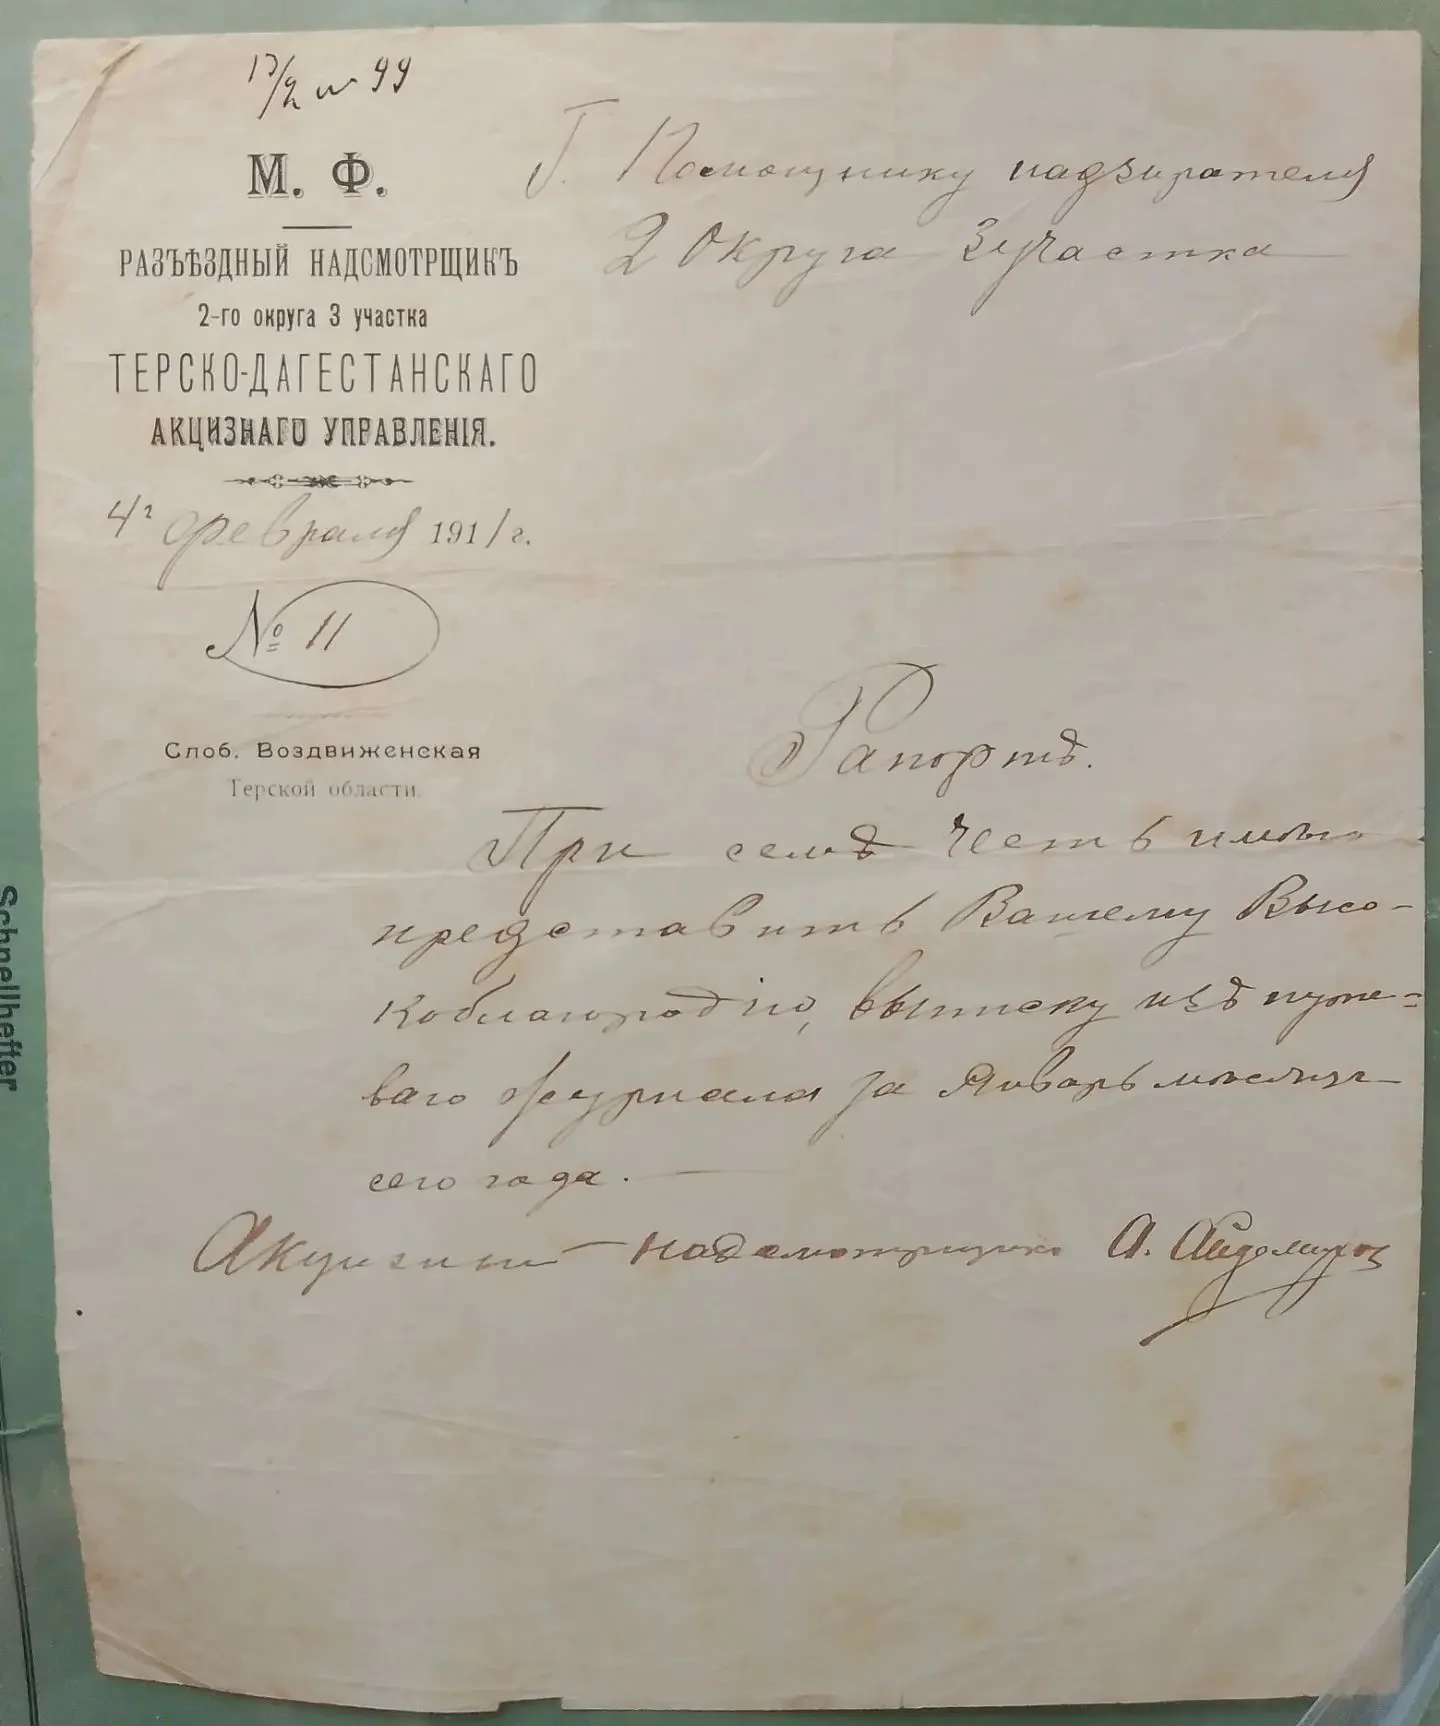 М. Ф.
РАЗЪѢЗДНЫЙ НАДСМОТРЩИКЪ
2-го округа 3 участка
ТЕРСКО-ДАГЕСТАНСКАГО
АКЦИЗНАГО УПРАВЛЕНІЯ.
4го февраля 1911 г.
№ 11
Слоб. Воздвиженская
Терской области.
Г. Помощнику надзирателя
2 Округа 3 участка
Рапортъ.
При семъ честь имѣю
представить Вашему Высо-
коблагородію, выписку изъ путе=
ваго журнала за Январь мѣсяцъ
сего года.
Акцизный надсмотрщикъ А.
Schnellhefter